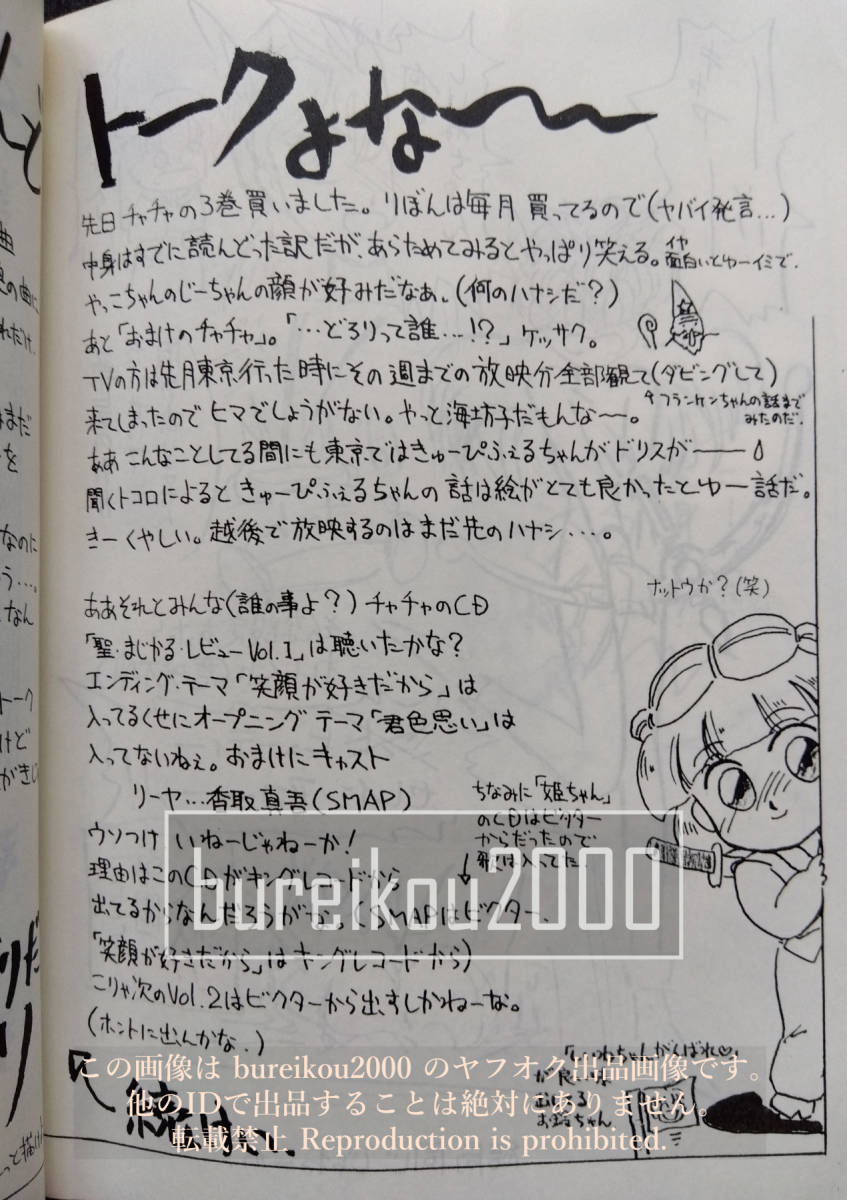 トークよな〜〜
先日チャチャの3巻買いました。りぼんは毎月買ってるので(ヤバイ発言…)
中身はすでに読んどった訳だが、あらためてみるとやっぱり笑える。イヤ面白いとゆーイミで.
やっこちゃんのじーちゃんの顔が好みだなぁ。(何のハナシだ?)
あと「おまけのチャチャ」。「…どろりって誰…!?」ケッサク。
TVの方は先月東京行った時にその週までの放映分全部観て(ダビングして)
来てしまったのでヒマでしょうがない。やっと海坊子だもんな〜。
↑フランケンちゃんの話まで
みたのだ.
ああこんなことしてる間にも東京ではきゅーぴふぇるちゃんがドリスが――
聞くトコロによるときゅーぴふぇるちゃんの話は絵がとても良かったとゆー話だ。
きーくやしい。越後で放映するのはまだ先のハナシ…。
ナットウか?(笑)
ああそれとみんな(誰の事よ?)チャチャのCD
「聖・まじかる・レビューVol.1」は聴いたかな?
エンディング・テーマ「笑顔が好きだから」は
入ってるくせにオープニングテーマ「君色思い」は
入ってないねぇ。おまけにキャスト
リーヤ…香取真吾(SMAP)
ウソつけいねーじゃねーか!
理由はこのCDがキングレコードから
出てるからなんだろうがな。(SMAPはビクター、
「笑顔が好きだから」はキングレコードから)
こりゃ次のVol.2はビクターから出すしかねーな。
(ホントに出んかな.)
ちなみに「姫ちゃん」
のCDはビクター
からだったので
歌は入ってた.
↓
bureikou2000
この画像は bureikou2000 のヤフオク出品画像です。
他のIDで出品することは絶対にありません。
転載禁止 Reproduction is prohibited.